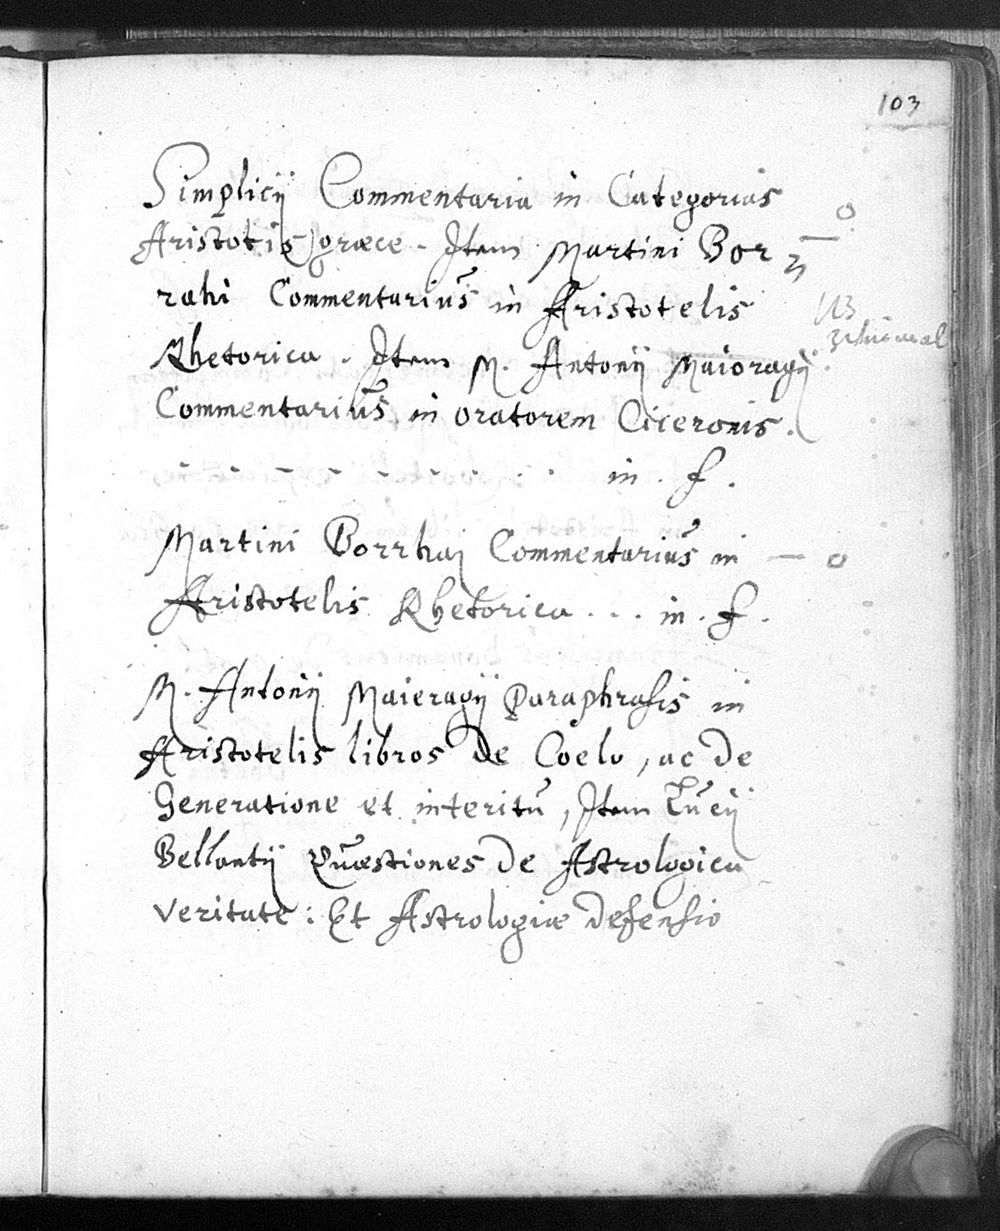 103
Simplicij Commentaria in Categorias
Aristotis græce - Item Martini Bor
rahi Commentarius in Aristotelis
Rhetorica. Item M. Antonij Maioragij
Commentarius in oratorem Ciceronis.
in. f.
Martini Borrhaj Commentarius in — o
Aristotelis Rhetorica . . . in. f.
M. Antonij Maieragij Paraphrasis in
Aristotelis libros de Coelo, ac de
Generatione et interitu, Item Lucij
Bellantij Quæstiones de Astrologica
veritate: Et Astrologiæ defensio